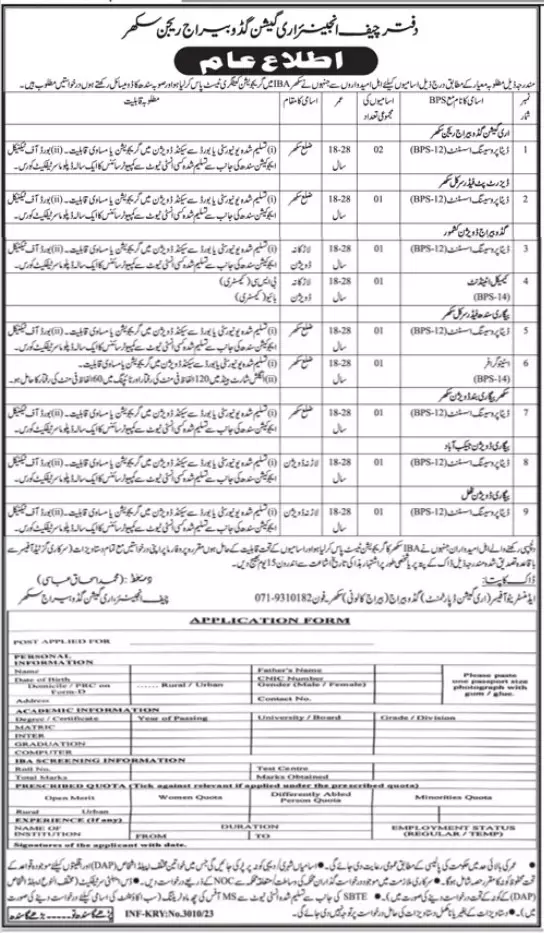 دفتر چیف انجینئر اری گیشن گڈو بیراج ریجن سکھر
اطلاع عام
مندرجہ ذیل مطلوبہ معیار کے مطابق درج ذیل اسامیوں کیلئے اہل امیدواروں سے جنہوں نے سکھر IBA میں گریجویشن کیٹگری ٹیسٹ پاس کر لیا ہو اور صوبہ سندھ کا ڈومیسائل رکھتے ہوں درخواستیں مطلوب ہیں۔
نمبر شمار اسامی کا نام مع BPS اسامیوں کی مجموعی تعداد عمر اسامی کا مقام مطلوبہ قابلیت
اری گیشن گڈو بیراج ریجن سکھر
1 ڈیٹا پروسیسنگ اسسٹنٹ (BPS-12) 02 18-28 سال ضلع سکھر (i) تسلیم شدہ یونیورسٹی یا بورڈ سے سیکنڈ ڈویژن میں گریجویشن یا مساوی قابلیت۔ (ii) بورڈ آف ٹیکنیکل
ایجوکیشن سندھ کی جانب سے تسلیم شدہ کسی انسٹی ٹیوٹ سے کمپیوٹر سائنس کا ایک سالہ ڈپلوما سرٹیفکیٹ کورس۔
ڈیزرٹ پٹ فیڈر سرکل سکھر
2 ڈیٹا پروسیسنگ اسسٹنٹ (BPS-12) 01 18-28 سال ضلع سکھر (i) تسلیم شدہ یونیورسٹی یا بورڈ سے سیکنڈ ڈویژن میں گریجویشن یا مساوی قابلیت۔ (ii) بورڈ آف ٹیکنیکل
ایجوکیشن سندھ کی جانب سے تسلیم شدہ کسی انسٹی ٹیوٹ سے کمپیوٹر سائنس کا ایک سالہ ڈپلوما سرٹیفکیٹ کورس۔
گڈو بیراج ڈویژن کشمور
3 ڈیٹا پروسیسنگ اسسٹنٹ (BPS-12) 01 18-28 سال لاڑکانہ ڈویژن (i) تسلیم شدہ یونیورسٹی یا بورڈ سے سیکنڈ ڈویژن میں گریجویشن یا مساوی قابلیت۔ (ii) بورڈ آف ٹیکنیکل
ایجوکیشن سندھ کی جانب سے تسلیم شدہ کسی انسٹی ٹیوٹ سے کمپیوٹر سائنس کا ایک سالہ ڈپلوما سرٹیفکیٹ کورس۔
4 کیمیکل اٹینڈنٹ (BPS-14) 01 18-28 سال لاڑکانہ ڈویژن بی ایس سی (کیمسٹری)
بائیو (کیمسٹری)
بیگاری سندھ فیڈر سرکل سکھر
5 ڈیٹا پروسیسنگ اسسٹنٹ (BPS-12) 01 18-28 سال ضلع سکھر (i) تسلیم شدہ یونیورسٹی یا بورڈ سے سیکنڈ ڈویژن میں گریجویشن یا مساوی قابلیت۔ (ii) بورڈ آف ٹیکنیکل
ایجوکیشن سندھ کی جانب سے تسلیم شدہ کسی انسٹی ٹیوٹ سے کمپیوٹر سائنس کا ایک سالہ ڈپلوما سرٹیفکیٹ کورس۔
6 اسٹینوگرافر (BPS-14) 01 18-28 سال ضلع سکھر (i) تسلیم شدہ یونیورسٹی یا بورڈ سے سیکنڈ ڈویژن میں گریجویشن یا مساوی قابلیت۔
(ii) انگلش شارٹ ہینڈ میں 120 الفاظ فی منٹ کی رفتار اور ٹائپنگ میں 60 الفاظ فی منٹ کی رفتار کا حامل ہو۔
سکھر بیگاری بند ڈویژن سکھر
7 ڈیٹا پروسیسنگ اسسٹنٹ (BPS-12) 01 18-28 سال ضلع سکھر (i) تسلیم شدہ یونیورسٹی یا بورڈ سے سیکنڈ ڈویژن میں گریجویشن یا مساوی قابلیت۔ (ii) بورڈ آف ٹیکنیکل
ایجوکیشن سندھ کی جانب سے تسلیم شدہ کسی انسٹی ٹیوٹ سے کمپیوٹر سائنس کا ایک سالہ ڈپلوما سرٹیفکیٹ کورس۔
بیگاری ڈویژن جیکب آباد
8 ڈیٹا پروسیسنگ اسسٹنٹ (BPS-12) 01 18-28 سال ڈویژن (i) تسلیم شدہ یونیورسٹی یا بورڈ سے سیکنڈ ڈویژن میں گریجویشن یا مساوی قابلیت۔ (ii) بورڈ آف ٹیکنیکل
ایجوکیشن سندھ کی جانب سے تسلیم شدہ کسی انسٹی ٹیوٹ سے کمپیوٹر سائنس کا ایک سالہ ڈپلوما سرٹیفکیٹ کورس۔
بیگاری ڈویژن ٹھل
9 ڈیٹا پروسیسنگ اسسٹنٹ (BPS-12) 01 18-28 سال ڈویژن (i) تسلیم شدہ یونیورسٹی یا بورڈ سے سیکنڈ ڈویژن میں گریجویشن یا مساوی قابلیت۔ (ii) بورڈ آف ٹیکنیکل
ایجوکیشن سندھ کی جانب سے تسلیم شدہ کسی انسٹی ٹیوٹ سے کمپیوٹر سائنس کا ایک سالہ ڈپلوما سرٹیفکیٹ کورس۔
دلچسپی رکھنے والے اہل امیدواران جنہوں نے IBA سکھر کا گریجویشن ٹیسٹ پاس کر لیا ہو اور اسامیوں کے تحت قابلیت کے حامل ہوں مقررہ پروفارما پر اپنی درخواستیں مع تمام دستاویزات (سرکاری گزیٹڈ آفیسر سے
باقاعدہ تصدیق شدہ مندرجہ ذیل ڈاک کے پتہ پر یا شخصی طور پر اشتہار ہذا کی تاریخ اشاعت سے اندرون 15 یوم بھیج دیں۔
ڈاک کا پتہ: دستخط (محمد اسحاق عباسی)
ایڈمنسٹریٹو آفیسر (اری گیشن ڈپارٹمنٹ) گڈو بیراج (بیراج کالونی) سکھر۔ فون 071-9310182 چیف انجینئر اری گیشن گڈو بیراج سکھر
APPLICATION FORM
POST APPLIED FOR
PERSONAL INFORMATION
Name Father's Name
Date of Birth CNIC Number
Domicile / PRC on Form-D ...... Rural / Urban Gender (Male / Female)
Address Contact No.
Please paste one passport size photograph with gum / glue.
ACADEMIC INFORMATION
Degree / Certificate Year of Passing University / Board Grade / Division
MATRIC
INTER
GRADUATION
COMPUTER
IBA SCREENING INFORMATION
Roll No. Test Centre
Total Marks Marks Obtained
PRESCRIBED QUOTA (Tick against relevant if applied under the prescribed quota)
Open Merit Women Quota Differently Abled Person Quota Minorities Quota
Rural Urban
EXPERIENCE (If any)
NAME OF INSTITUTION DURATION EMPLOYMENT STATUS (REGULAR / TEMP)
FROM TO
Signatures of the applicant with date.
INF-KRY:No.3010/23
پڑھے گا سندھ تو۔۔۔ بڑھے گا سندھ